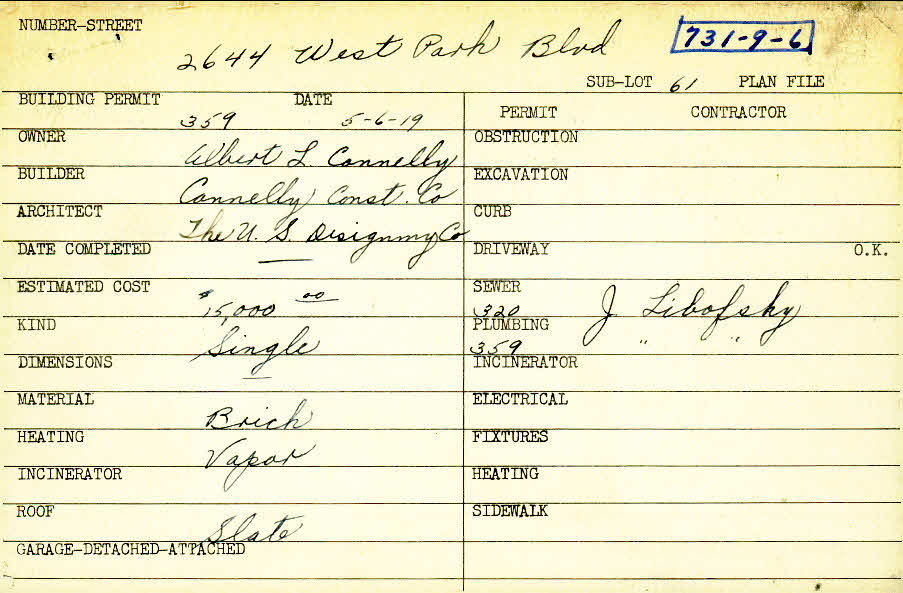 NUMBER-STREET
2644 West Park Blvd
731-9-6
SUB-LOT 61 PLAN FILE
BUILDING PERMIT DATE
359 5-6-19
OWNER
Albert L. Connelly
BUILDER
Connelly Const. Co
ARCHITECT
The U. S. Disignmy Co
DATE COMPLETED
—
ESTIMATED COST
$15,000 00
KIND
Single
DIMENSIONS
—
MATERIAL
Brick
HEATING
Vapor
INCINERATOR
ROOF
Slate
GARAGE-DETACHED-ATTACHED
PERMIT CONTRACTOR
OBSTRUCTION
EXCAVATION
CURB
DRIVEWAY O.K.
SEWER
320 J Libofsky
PLUMBING
359 " "
INCINERATOR
ELECTRICAL
FIXTURES
HEATING
SIDEWALK